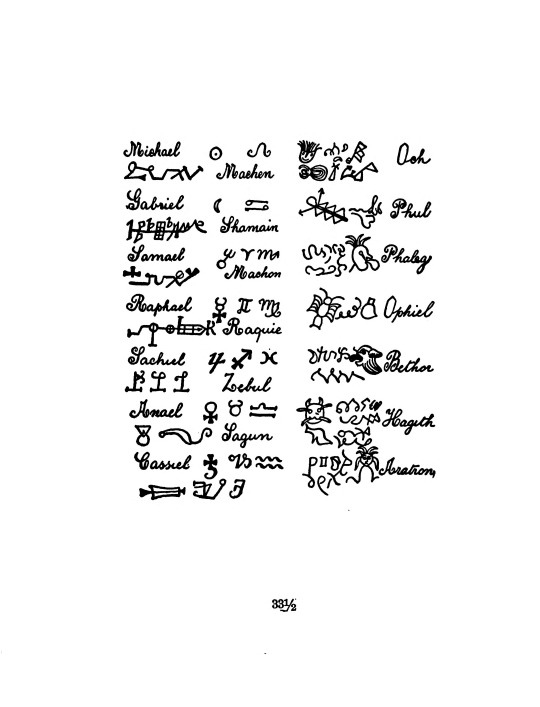 Michael ☉ ♌ Och
Machen
Gabriel ☾ ♋ Phul
Shamain
Samael ♈ ♏ Phaleg
Machon
Raphael ☿ ♊ ♍ Ophiel
Raquie
Sachiel ♃ ♐ ♓ Bethor
Zebul
Anael ♀ ♉ ♎ Hagith
Sagun
Cassiel ♑ ♒ Aratron
33½